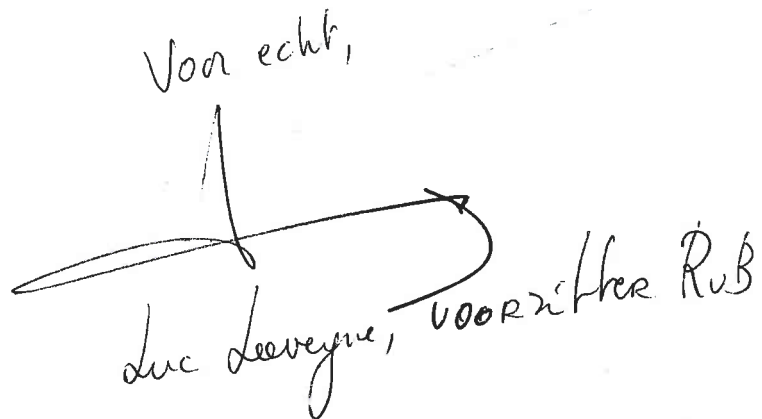 Voor echt,
Luc Leeveyne, voorzitter RvB